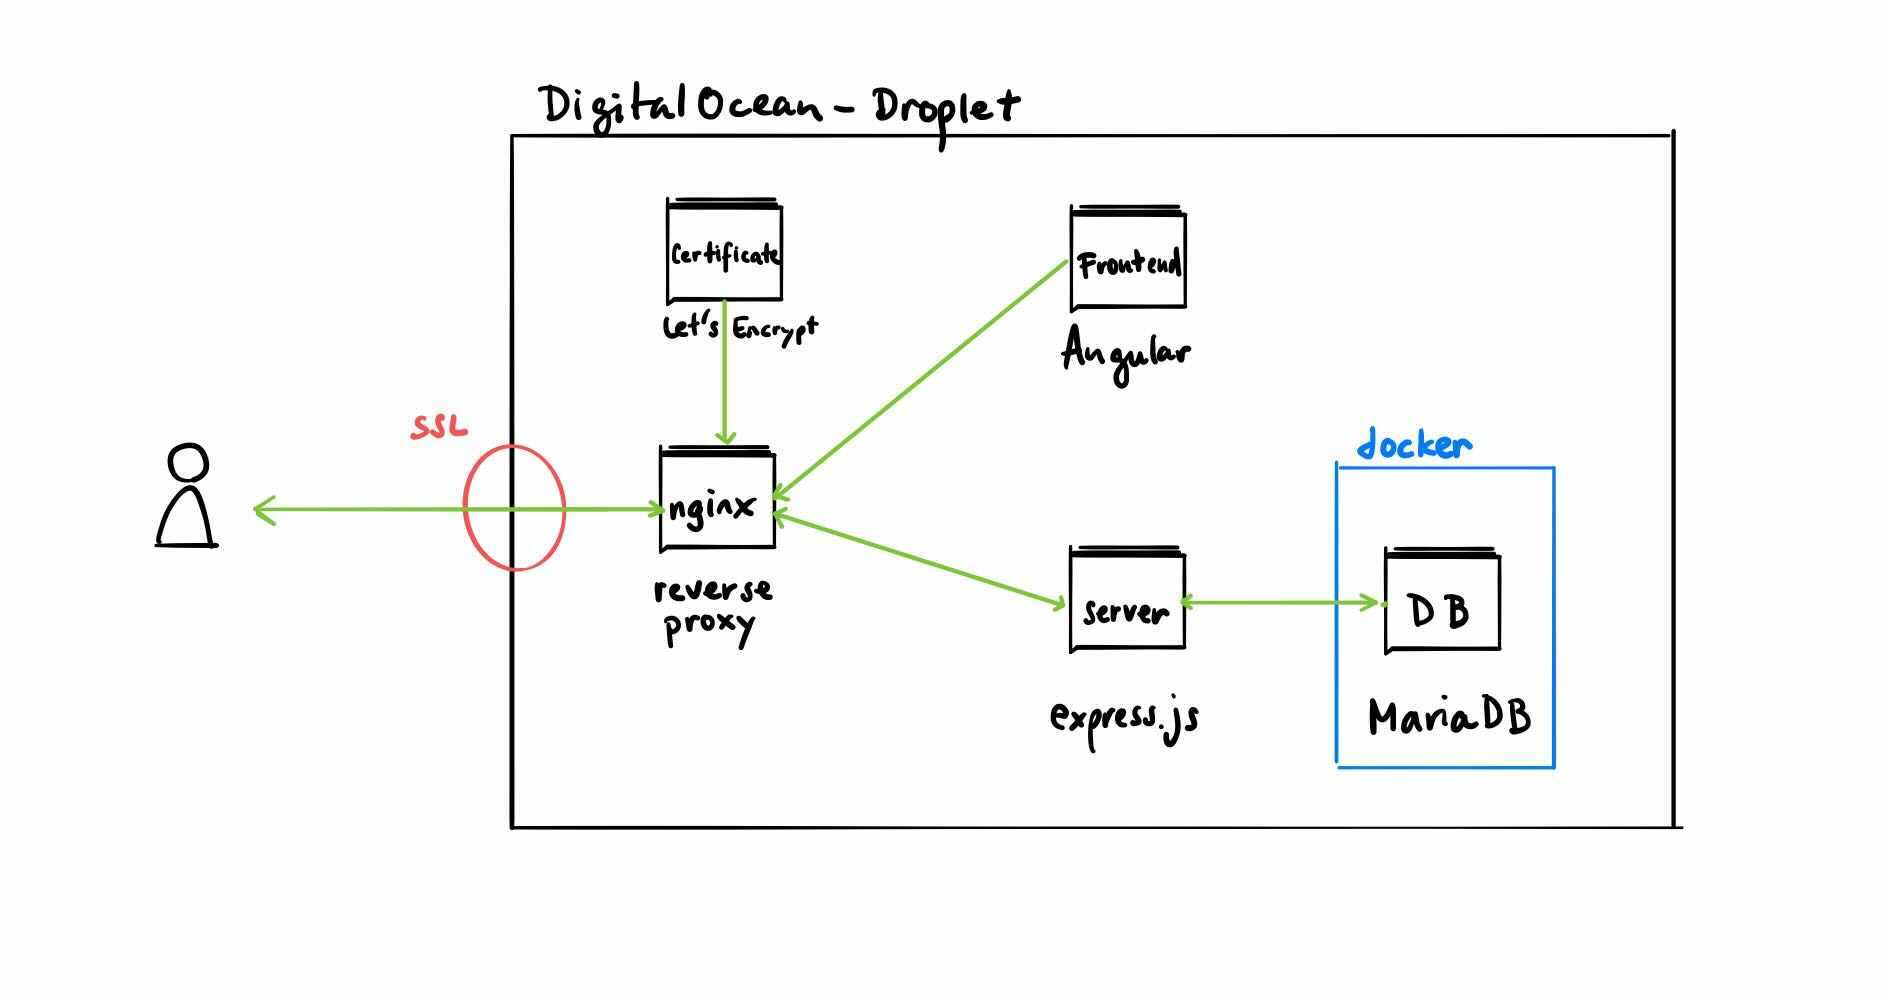 DigitalOcean - Droplet
Certificate
Let's Encrypt
Frontend
Angular
SSL
nginx
reverse
proxy
docker
server
express.js
DB
MariaDB